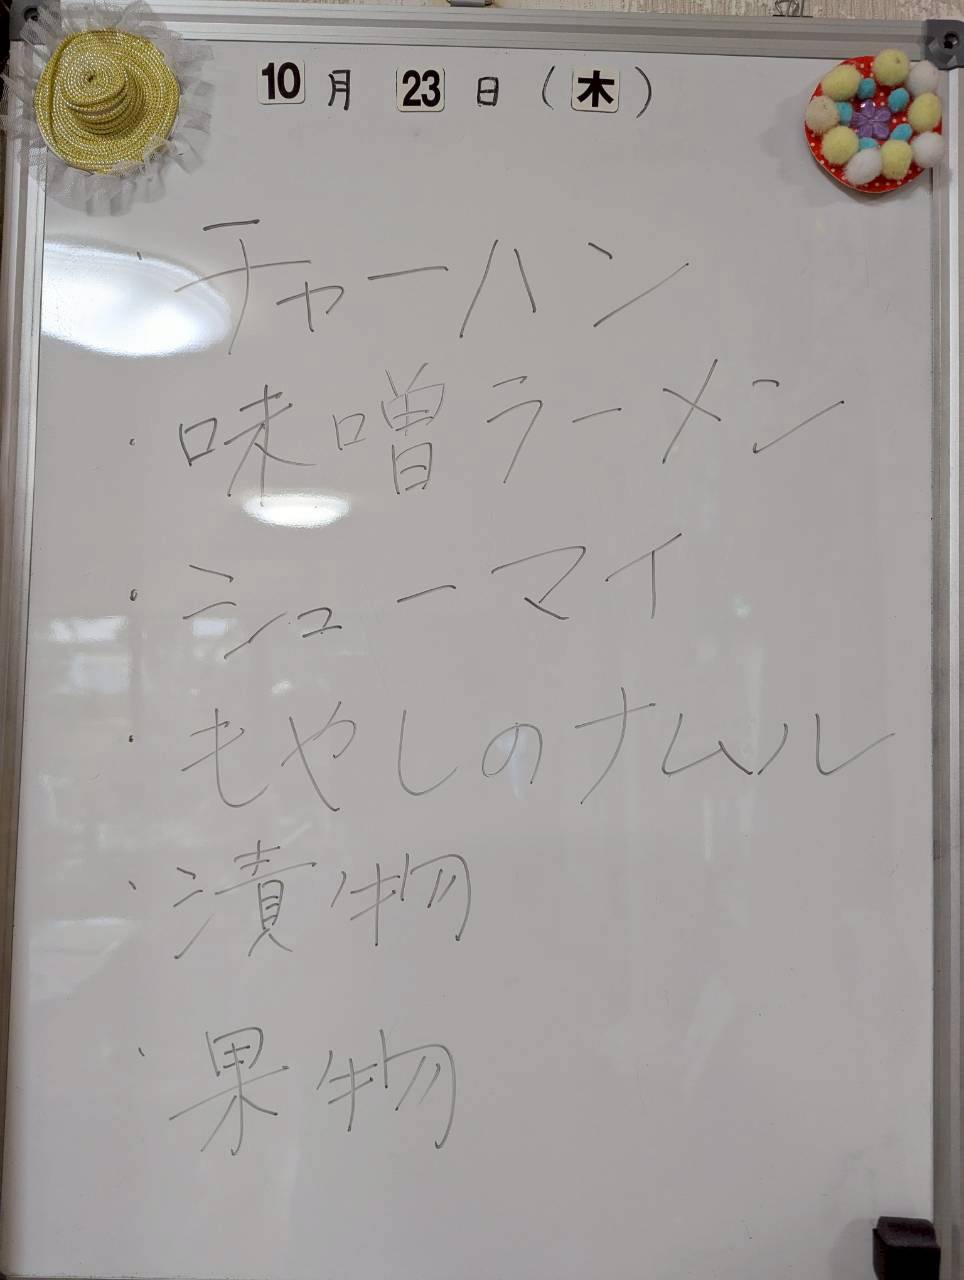 10月 23日（木）
・チャーハン
・味噌ラーメン
・シューマイ
・もやしのナムル
・漬物
・果物